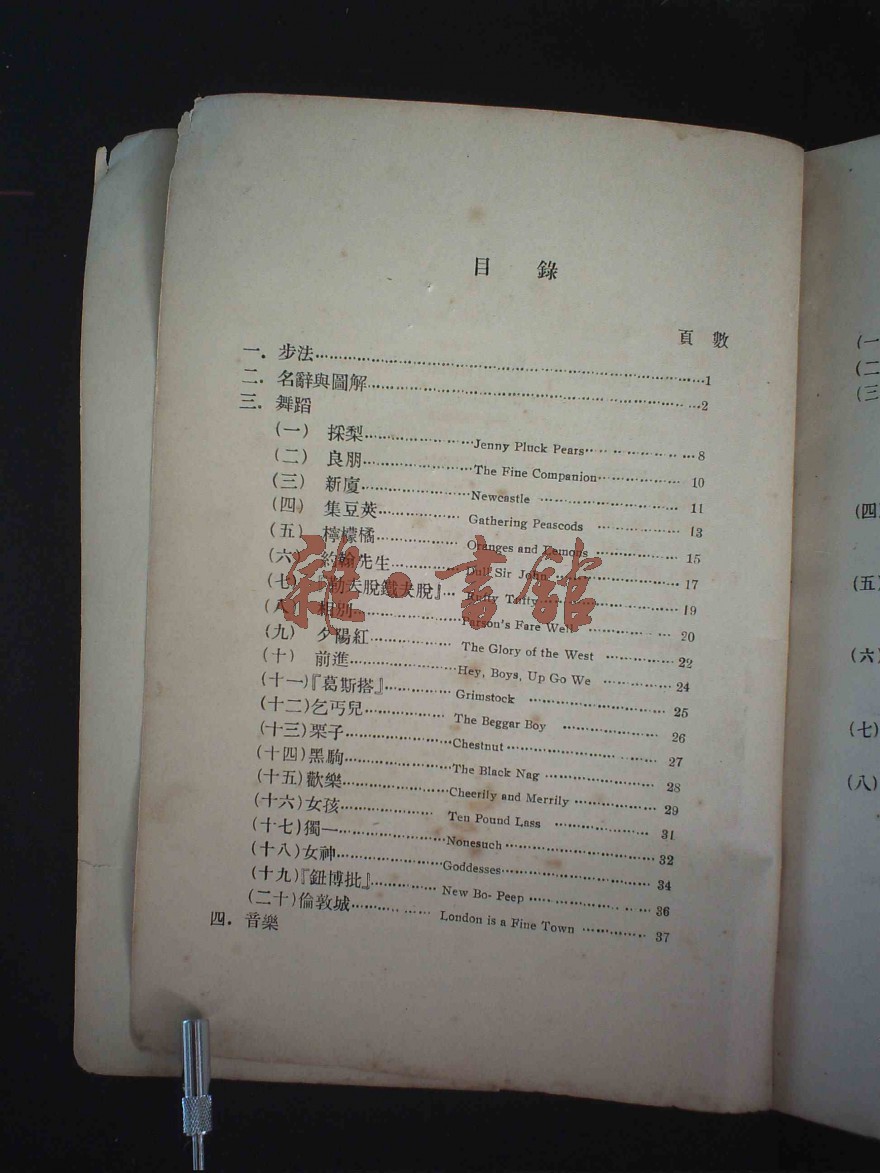 目 錄
頁 數
一．步法……1
二．名辭與圖解……2
三．舞蹈
(一) 採梨……Jenny Pluck Pears……8
(二) 良朋……The Fine Companion……10
(三) 新廈……Newcastle……11
(四) 集豆莢……Gathering Peascods……13
(五) 檸檬橘……Oranges and Lemons……15
(六) 約翰先生……Dull Sir John……17
(七)『勒夫脫鐵夫脫』……Rufty Tufty……19
(八) 相別……Parson's Fare Well……20
(九) 夕陽紅……The Glory of the West……22
(十) 前進……Hey, Boys, Up Go We……24
(十一)『葛斯搭』……Grimstock……25
(十二)乞丐兒……The Beggar Boy……26
(十三)栗子……Chestnut……27
(十四)黑駒……The Black Nag……28
(十五)歡樂……Cheerily and Merrily……29
(十六)女孩……Ten Pound Lass……31
(十七)獨一……Nonesuch……32
(十八)女神……Goddesses……34
(十九)『鈕博批』……New Bo- Peep……36
(二十)倫敦城……London is a Fine Town……37
四．音樂
雜·書館
(一
(二
(三
(四)
(五)
(六)
(七)
(八)